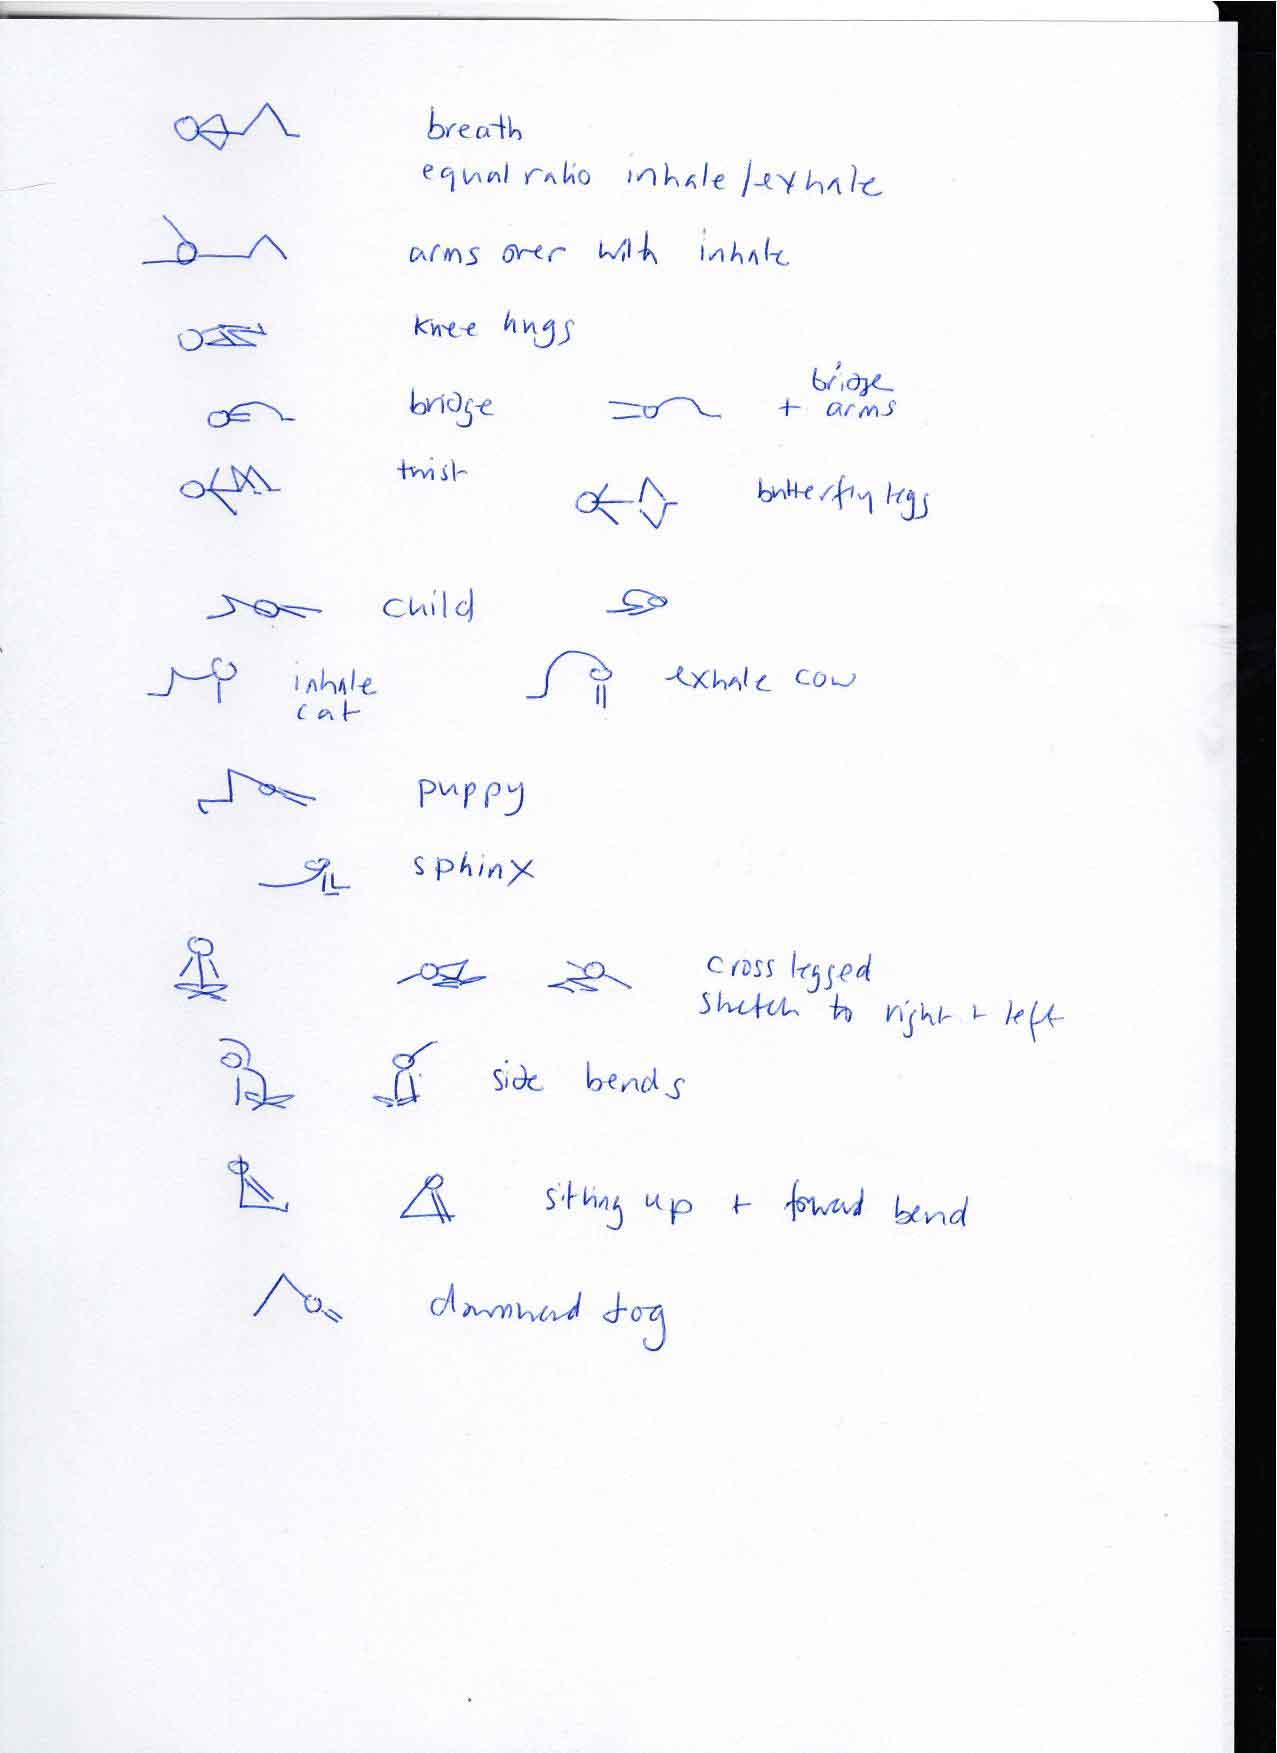 breath
equal ratio inhale/exhale
arms over with inhale
knee hugs
bridge
bridge
+ arms
twist
butterfly legs
child
inhale
cat
exhale cow
puppy
sphinx
cross legged
stretch to right + left
side bends
sitting up + forward bend
downward dog